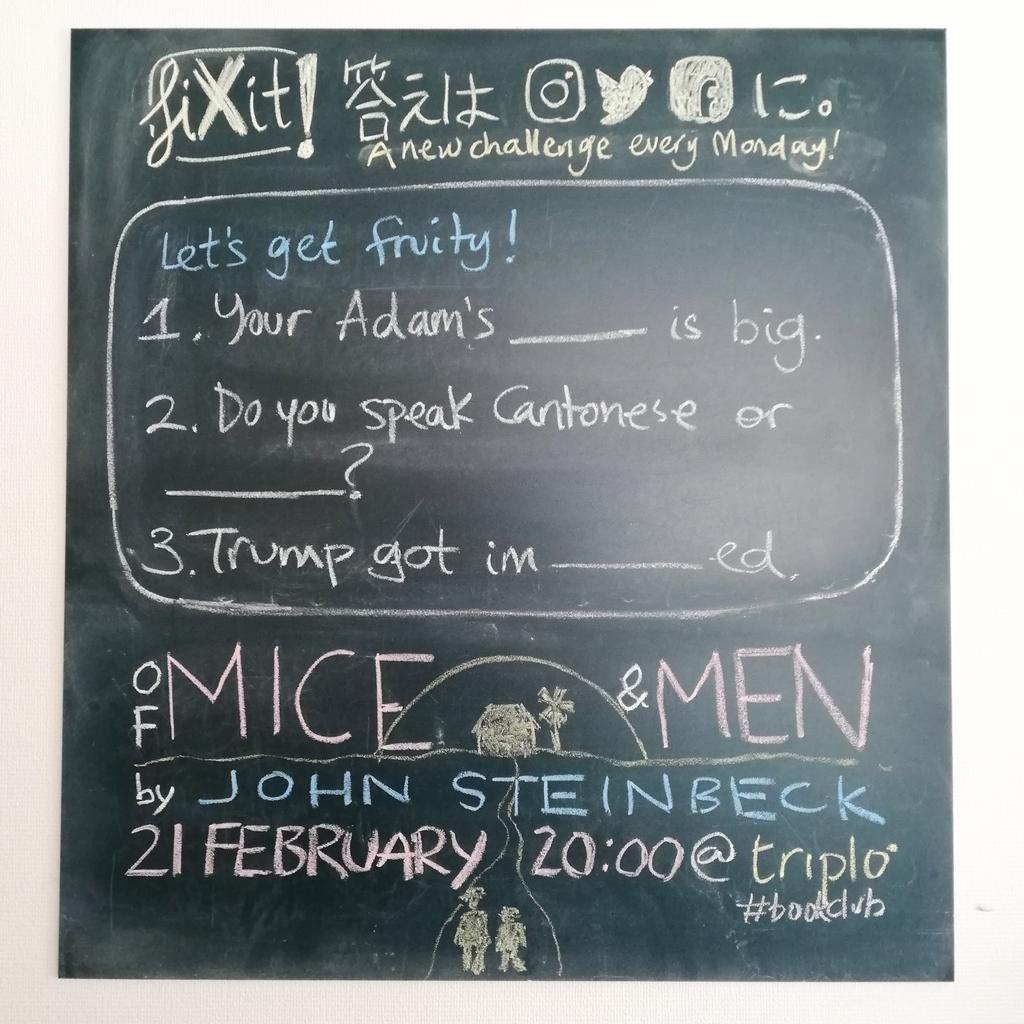 fiXit! 答えは に。
A new challenge every Monday!
Let's get fruity!
1. Your Adam's ____ is big.
2. Do you speak Cantonese or
____?
3. Trump got im ____ ed.
OF MICE & MEN
by JOHN STEINBECK
21 FEBRUARY 20:00 @ triplo
#bookclub